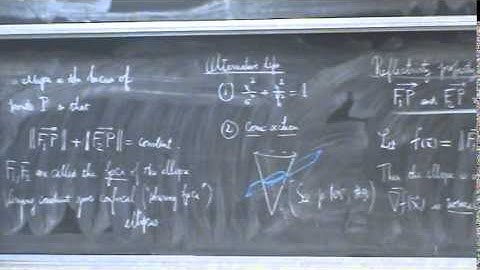 ellipse is the locus of
points P so that
‖F₁P‖ + ‖F₂P‖ = constant.
F₁, F₂ are called the foci of the ellipse
Varying constant gives confocal ("sharing foci")
ellipses
Alternative defs
① x²/a² + y²/b² = 1
② Conic section
(See p. 65,
Reflectivity
F₁P and F₂P
Let f(x) = ‖F₁
Then the ellipse is
∇f(x) is